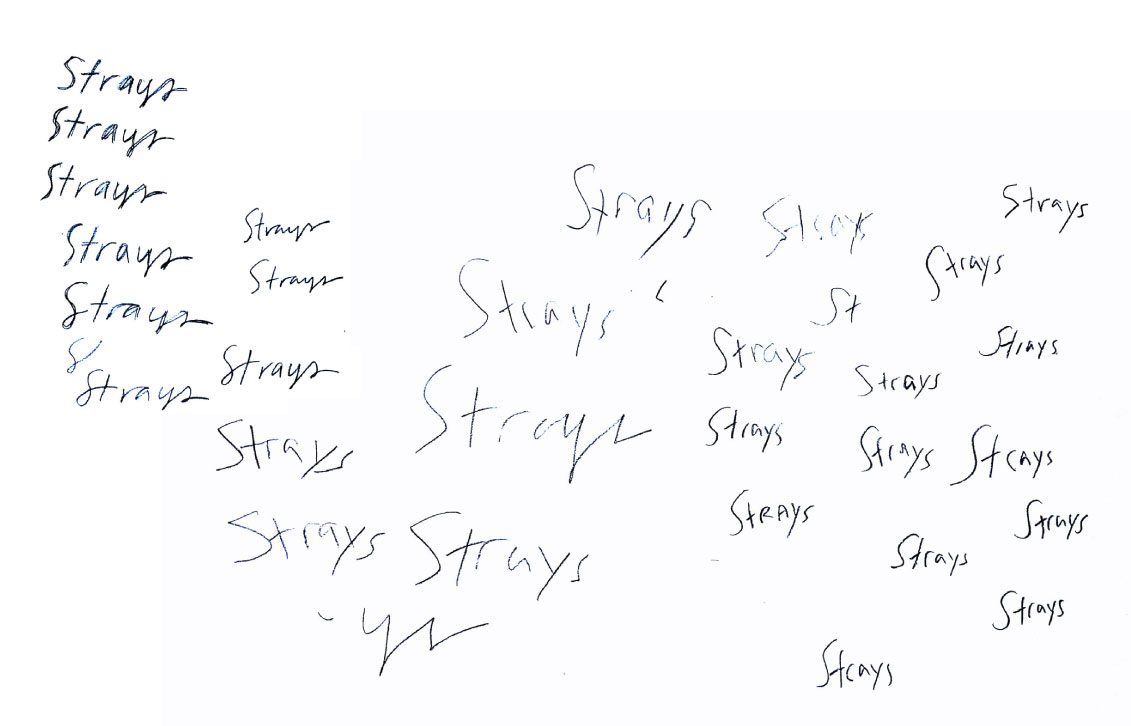 Strays
Strays
Strays
Strays
Strays
S
Strays
Strays
Strays
Strays
Strays
Strays
Strays
ys
Strays
Strays
Strays
Strays
Strays
Strays
Strays
St
Strays
Strays
Strays
Strays
Strays
Strays
StRAYS
Strays
Strays
Strays
Strays